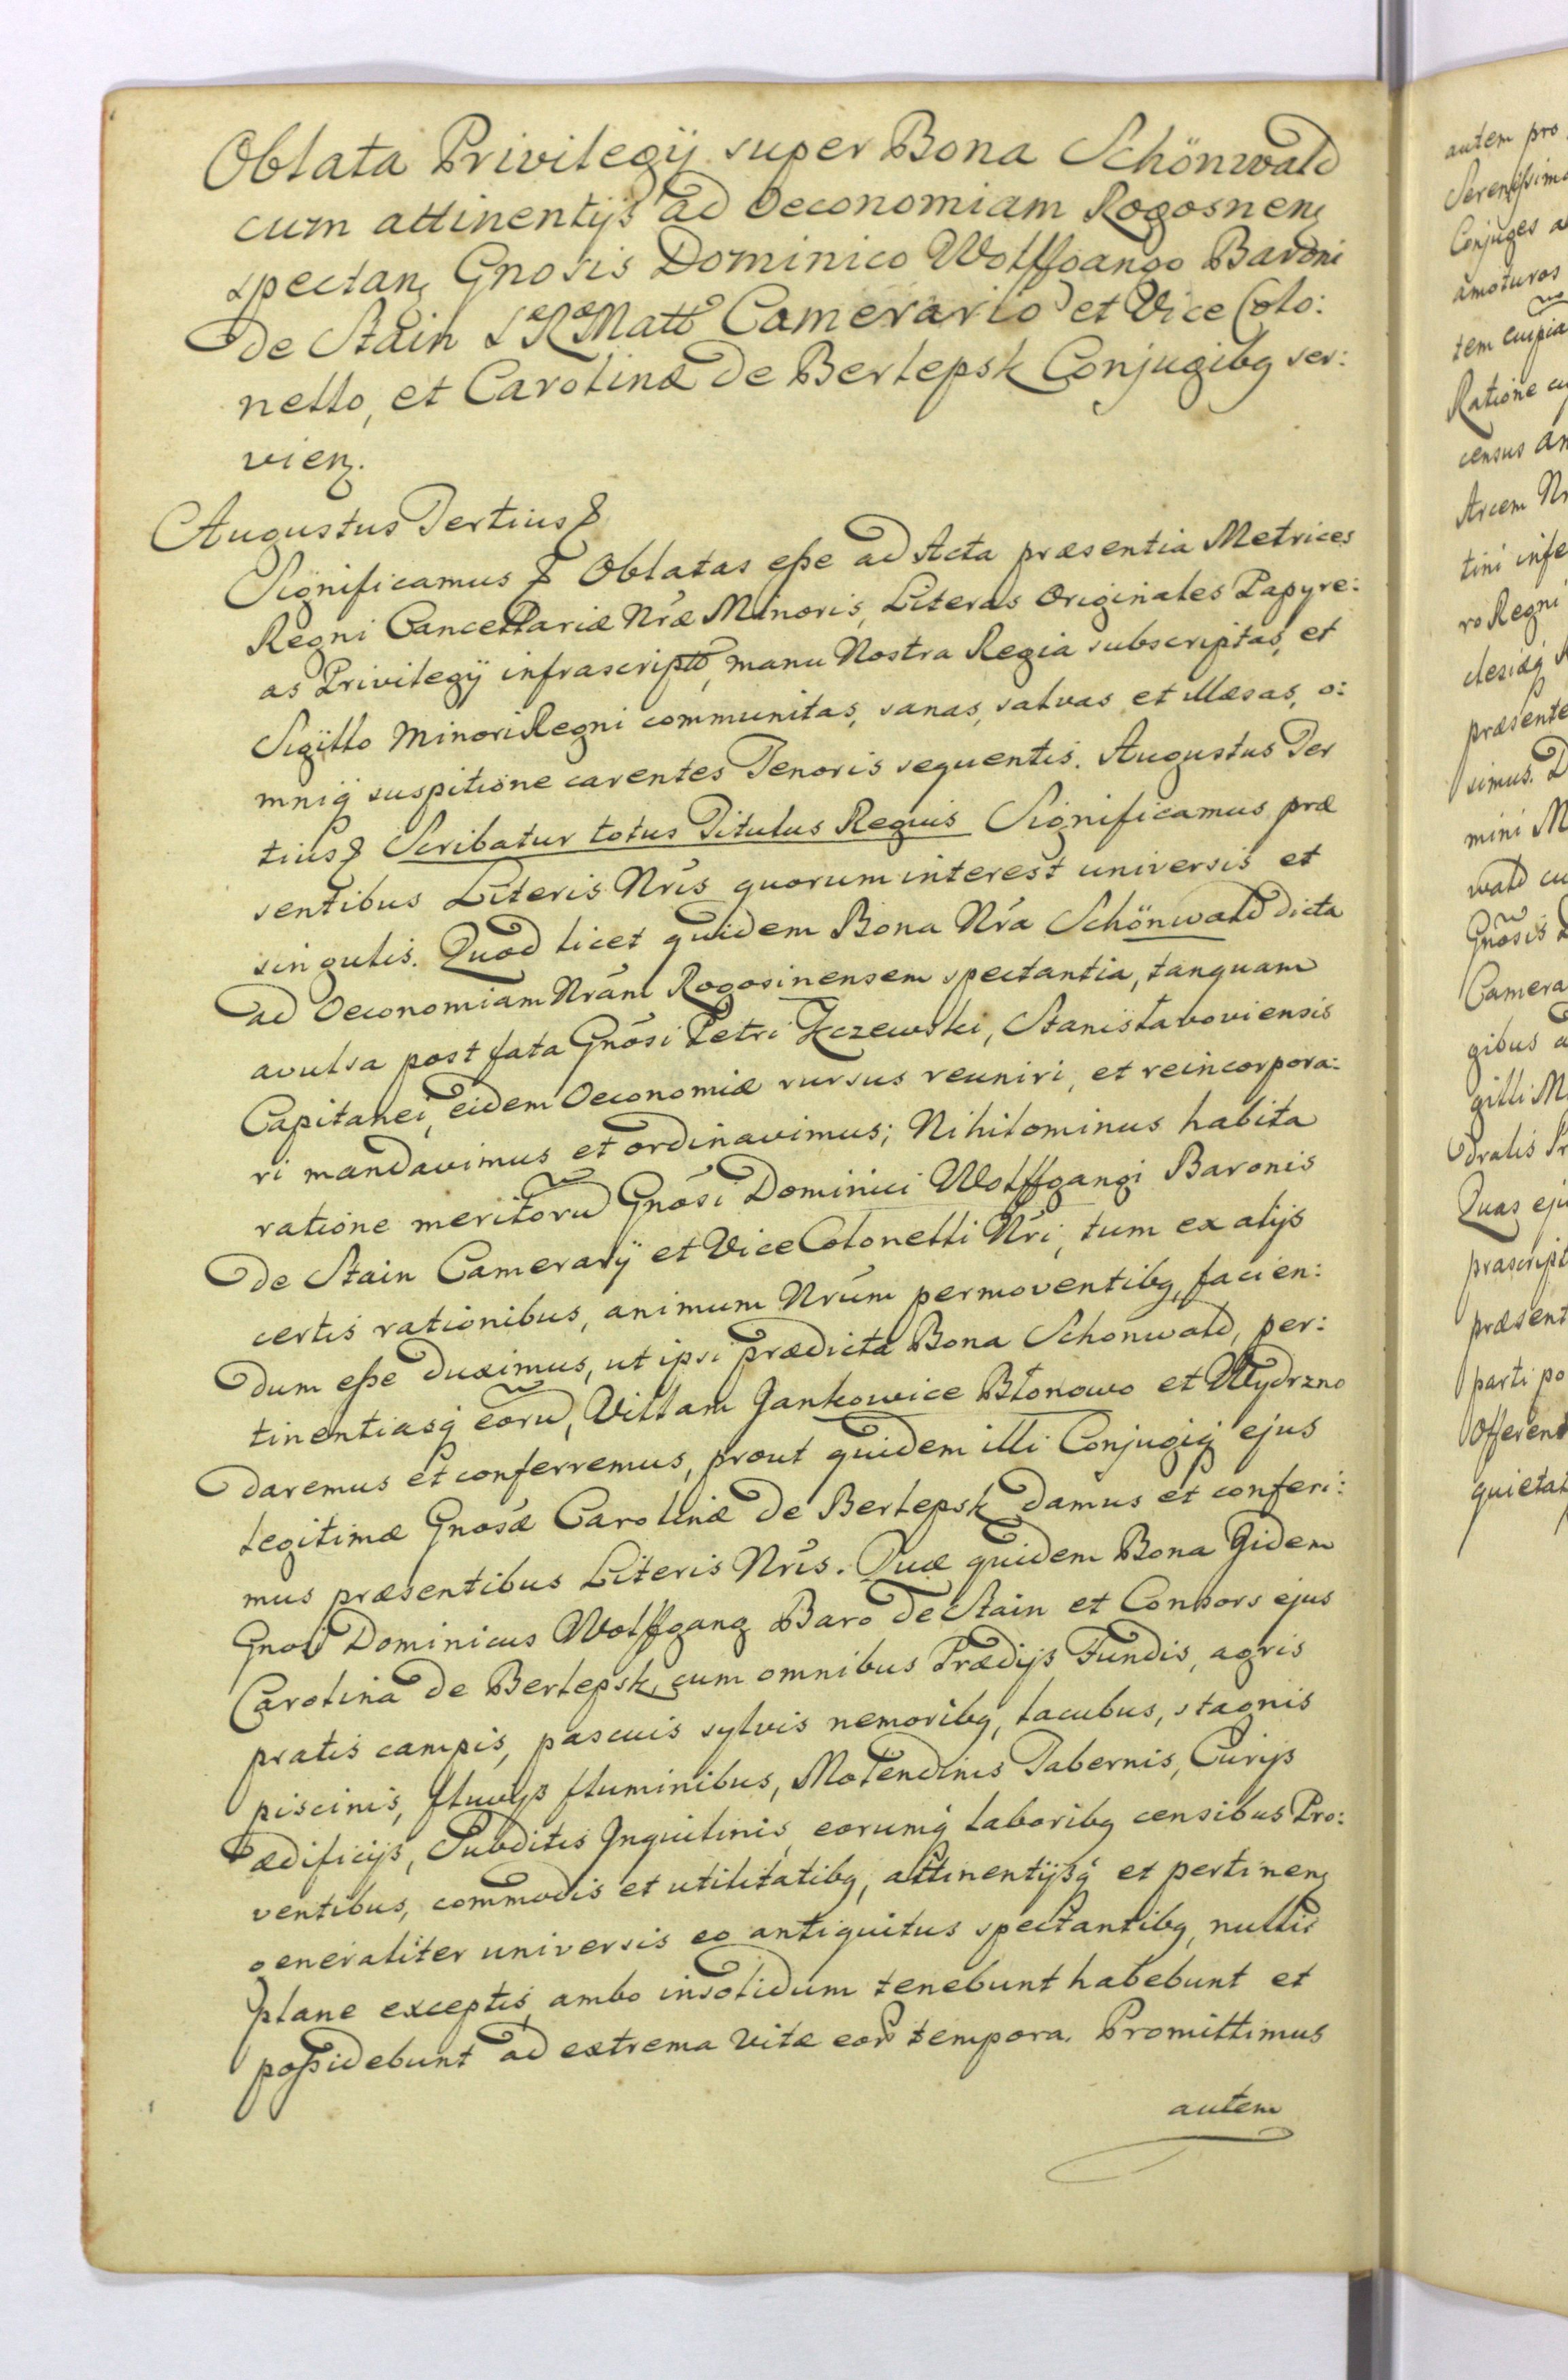 Oblata Privilegij super Bona Schönwald
cum attinentijs ad Oeconomiam Rogosnenȝ
spectanȝ Gnosis Dominico Wolffgango Baroni
de Stain S R Matt Camerario et Vice Colo:
nello, et Carolinæ de Berlepsk Conjugibꝯ ser:
vienȝ.
Augustus Tertius &
Significamus & Oblatas eße ad Acta præsentia Metrices
Regni Cancellariæ Nræ Minoris, Literas Originales Papyre:
as Privilegij infrascriptt, manu Nostra Regia subscriptas, et
Sigillo Minori Regni communitas, sanas, salvas et illæsas, o:
mniq́ suspitione carentes Tenoris sequentis. Augustus Ter
tius & Scribatur totus Titulus Regius Significamus præ
sentibus Literis Nris quorum interest universis et
singulis. Quod licet quidem Bona Nra Schönwald dicta
ad Oeconomiam Nram Rogosinensem spectantia, tanquam
avulsa post fata Gnosi Petri Kczewski, Stanislavoviensis
Capitanei, eidem Oeconomiæ rursus reuniri, et reincorpora:
ri mandavimus et ordinavimus; Nihilominus habita
ratione meritoru Gnosi Dominici Wolffgangi Baronis
de Stain Camerarij et Vice Colonelli Nri, tum ex alijs
certis rationibus, animum Nrum permoventibꝯ, facien:
dum eße duximus, ut ipsi prædicta Bona Schonwald, per:
tinentiasq́ eoru, Villam Jankowice Błonowo et Wydrzno
daremus et conferremus, prout quidem illi Conjugiq́ ejus
legitimæ Gnosæ Carolinæ de Berlepsk damus et conferi:
mus præsentibus Literis Nris. Quæ quidem Bona Jidem
Gnosi Dominicus Wolffgang Baro de Stain et Consors ejus
Carolina de Berlepsk, cum omnibus Prædijs Fundis, agris
pratis campis, pascuis sylvis nemoribꝯ, lacubus, stagnis
piscinis, fluvijs fluminibus, Molendinis Tabernis, Curijs
ædificijs, Subditis Inquilinis, eorumq́ laboribꝯ censibus Pro:
ventibus, commodis et utilitatibꝯ, attinentijsq́ et pertinenȝ
generaliter universis eo antiquitus spectantibꝯ, nullis
plane exceptis, ambo insolidum tenebunt habebunt et
poßidebunt ad extrema vitæ eor tempora. Promittimus
autem
autem pro
Conjuges a
amoturos
Ratione cu
census an
Arcem Nr
tini infe
ro Regni
præsente
simus. D
mini M
wald cu
Gnosis D
Camera
gibus a
gilli M
Quas eju
præscript
præsent
parti po
Offerent
quietat